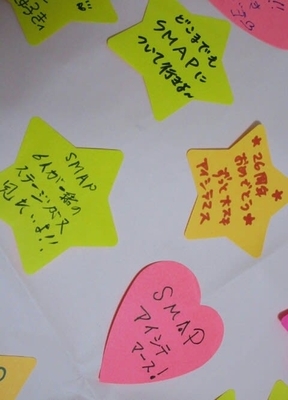 どこまでも
SMAPに
ついて行きます〜
SMAP
6人が一緒の
ステージが
見たいよ!!
★26周年★
おめでとう
ずっと大スキ
アイシテマス
SMAP
アイシテ
マース!